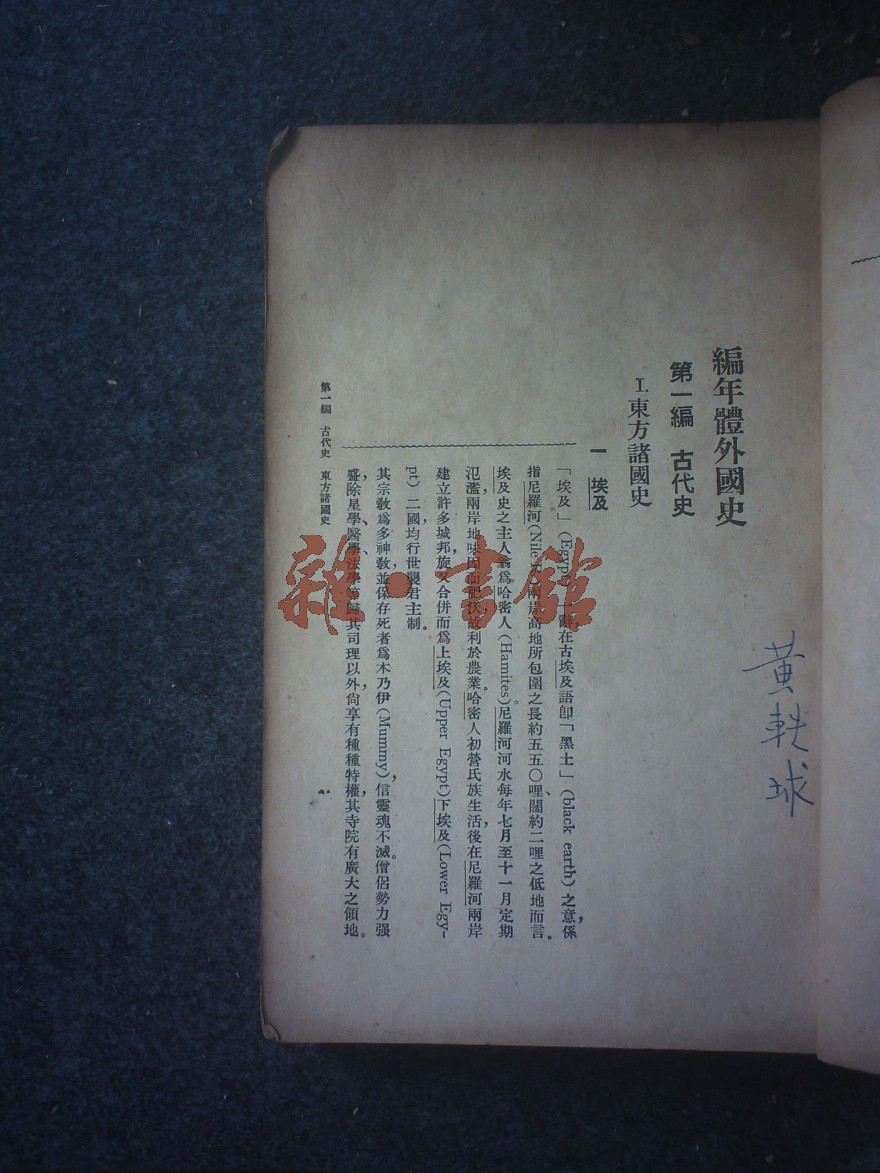 編年體外國史
第一編 古代史
I. 東方諸國史
一 埃及
「埃及」(Egypt)一辭，在古埃及語卽「黑土」(black earth)之意，係
指尼羅河(Nile R.)兩岸高地所包圍之長約五五〇哩、闊約二哩之低地而言。
埃及史之主人翁爲哈密人(Hamites)。尼羅河河水每年七月至十一月定期
氾濫，兩岸地味因而肥沃，故利於農業。哈密人初營氏族生活，後在尼羅河兩岸
建立許多城邦，旋又合併而爲上埃及(Upper Egypt)下埃及(Lower Egy-
pt)二國，均行世襲君主制。
其宗敎爲多神敎，並保存死者爲木乃伊(Mummy)，信靈魂不滅。僧侶勢力强
盛，除星學、醫學、法學等歸其司理以外，尙享有種種特權，其寺院有廣大之領地。
第一編 古代史 東方諸國史
一
黃軼球
雜·書館